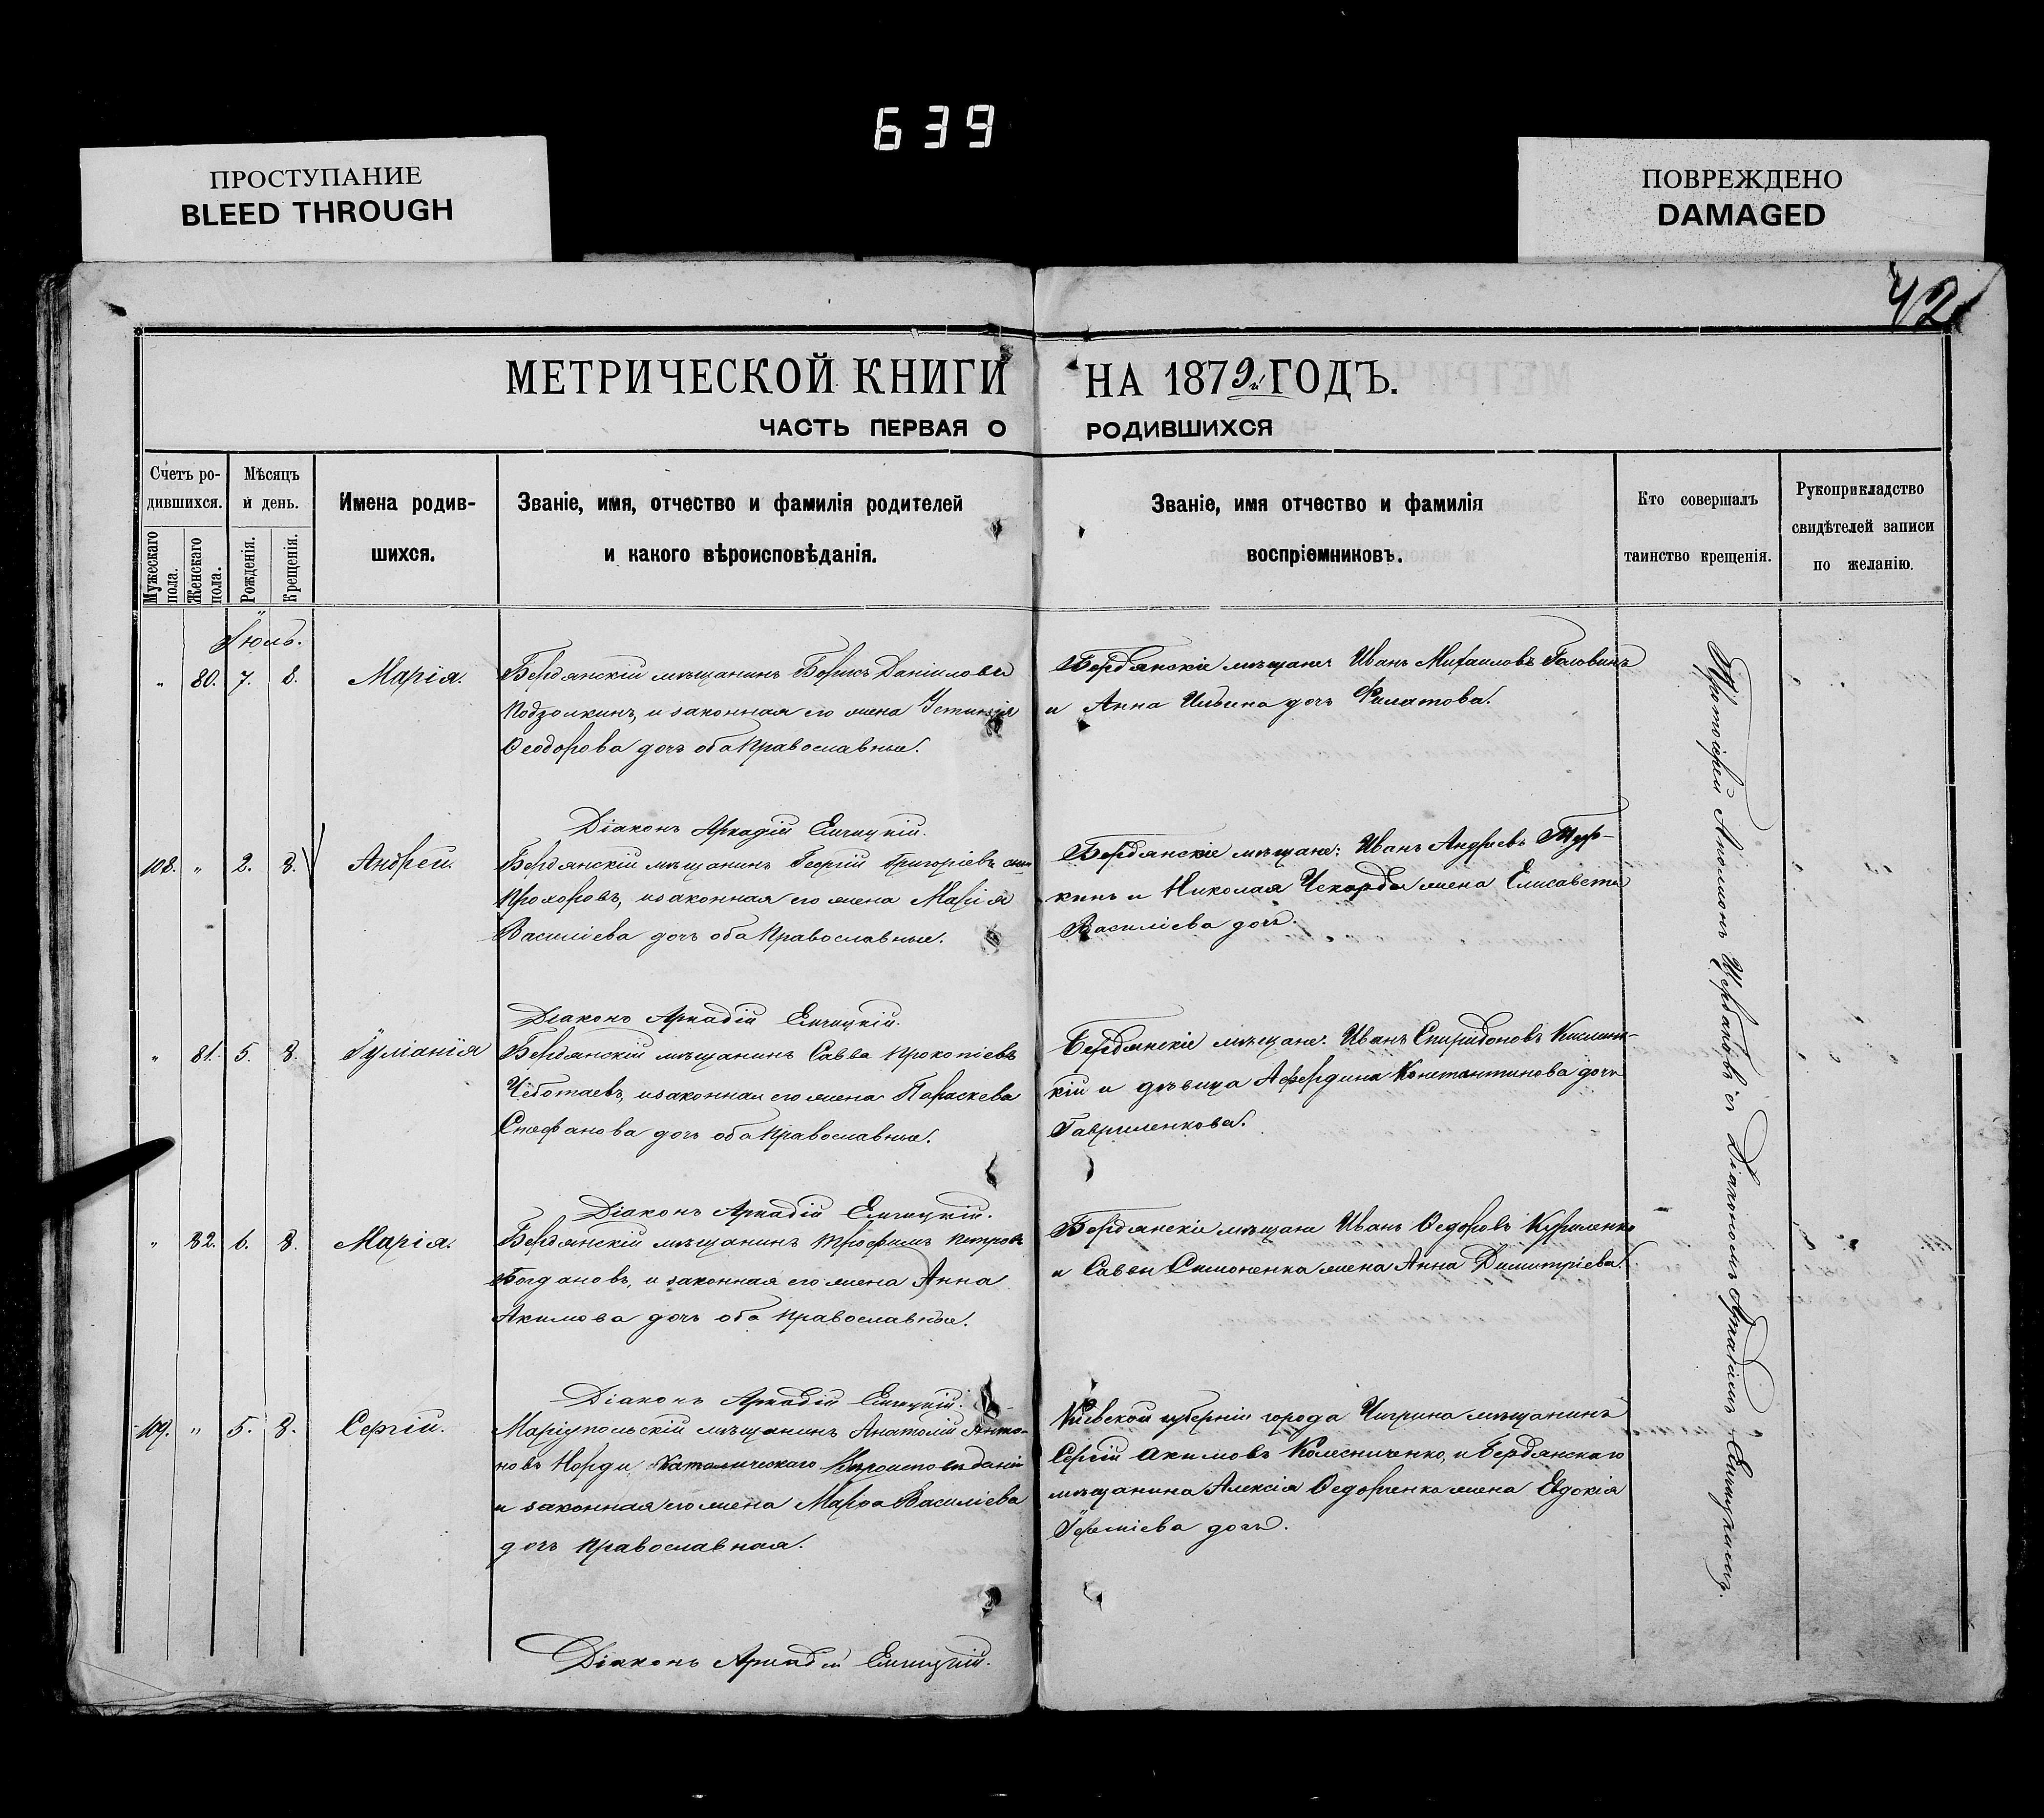 639
ПРОСТУПАНИЕ
BLEED THROUGH
ПОВРЕЖДЕНО
DAMAGED
42
МЕТРИЧЕСКОЙ КНИГИ НА 1879й ГОДЪ.
ЧАСТЬ ПЕРВАЯ О РОДИВШИХСЯ
Счетъ ро-
дившихся.
Мужескаго пола.
Женскаго пола.
Мѣсяцъ
и день.
Рожденія.
Крещенія.
Имена родив-
шихся.
Званіе, имя, отчество и фамилія родителей
и какого вѣроисповѣданія.
Званіе, имя отчество и фамилія
воспріемниковъ.
Кто совершалъ
таинство крещенія.
Рукоприкладство
свидѣтелей записи
по желанію.
Іюль.
" 80. 7. 8. Марія.
Бердянскій мѣщанинъ Борисъ Даніиловъ
Подзолкинъ, и законная его жена Устинія
Ѳеодорова дочь оба Православные.
Бердянскіе мѣщане: Иванъ Михаиловъ Головинъ
и Анна Ильина дочь Филатова.
Діаконъ Аркадій
108. " 2. 8. Андрей.
Бердянскій мѣщанинъ Георгій Григоріевъ сынъ
Прохоровъ, и законная его жена Марія
Василіева дочь оба Православные.
Бердянскіе мѣщане: Иванъ Андреевъ Тур-
кинъ и Николая Чекарда жена Елисавета
Василіева дочь.
Діаконъ Аркадій
" 81. 5. 8. Іуліанія
Бердянскій мѣщанинъ Савва Прокопіевъ
Чеботаевъ, и законная его жена Параскева
Стефанова дочь оба Православные.
Бердянскіе мѣщане: Иванъ Спиридоновъ
кій и дѣвица Константинова дочь
Гавриленкова.
Діаконъ Аркадій
" 82. 6. 8. Марія.
Бердянскій мѣщанинъ Трофимъ Петровъ
Богдановъ, и законная его жена Анна
Акимова дочь оба Православные.
Бердянскіе мѣщане Иванъ Ѳедоровъ Куриленко
и Саввы Симоненка жена Анна Димитріева.
Діаконъ Аркадій
109. " 5. 8. Сергій.
Маріупольскій мѣщанинъ Анатолій Анто-
новъ Норди, Католическаго Вѣроисповѣданія
и законная его жена Марѳа Василіева
дочь Православная.
Кіевской губерніи города Чигрина мѣщанинъ
Сергій Акимовъ Колесниченко, и Бердянскаго
мѣщанина Алексія Ѳедорченка жена Евдокія
дочь.
Діаконъ Аркадій
Протоіерей Щербаковъ съ Діакономъ Аркадіемъ